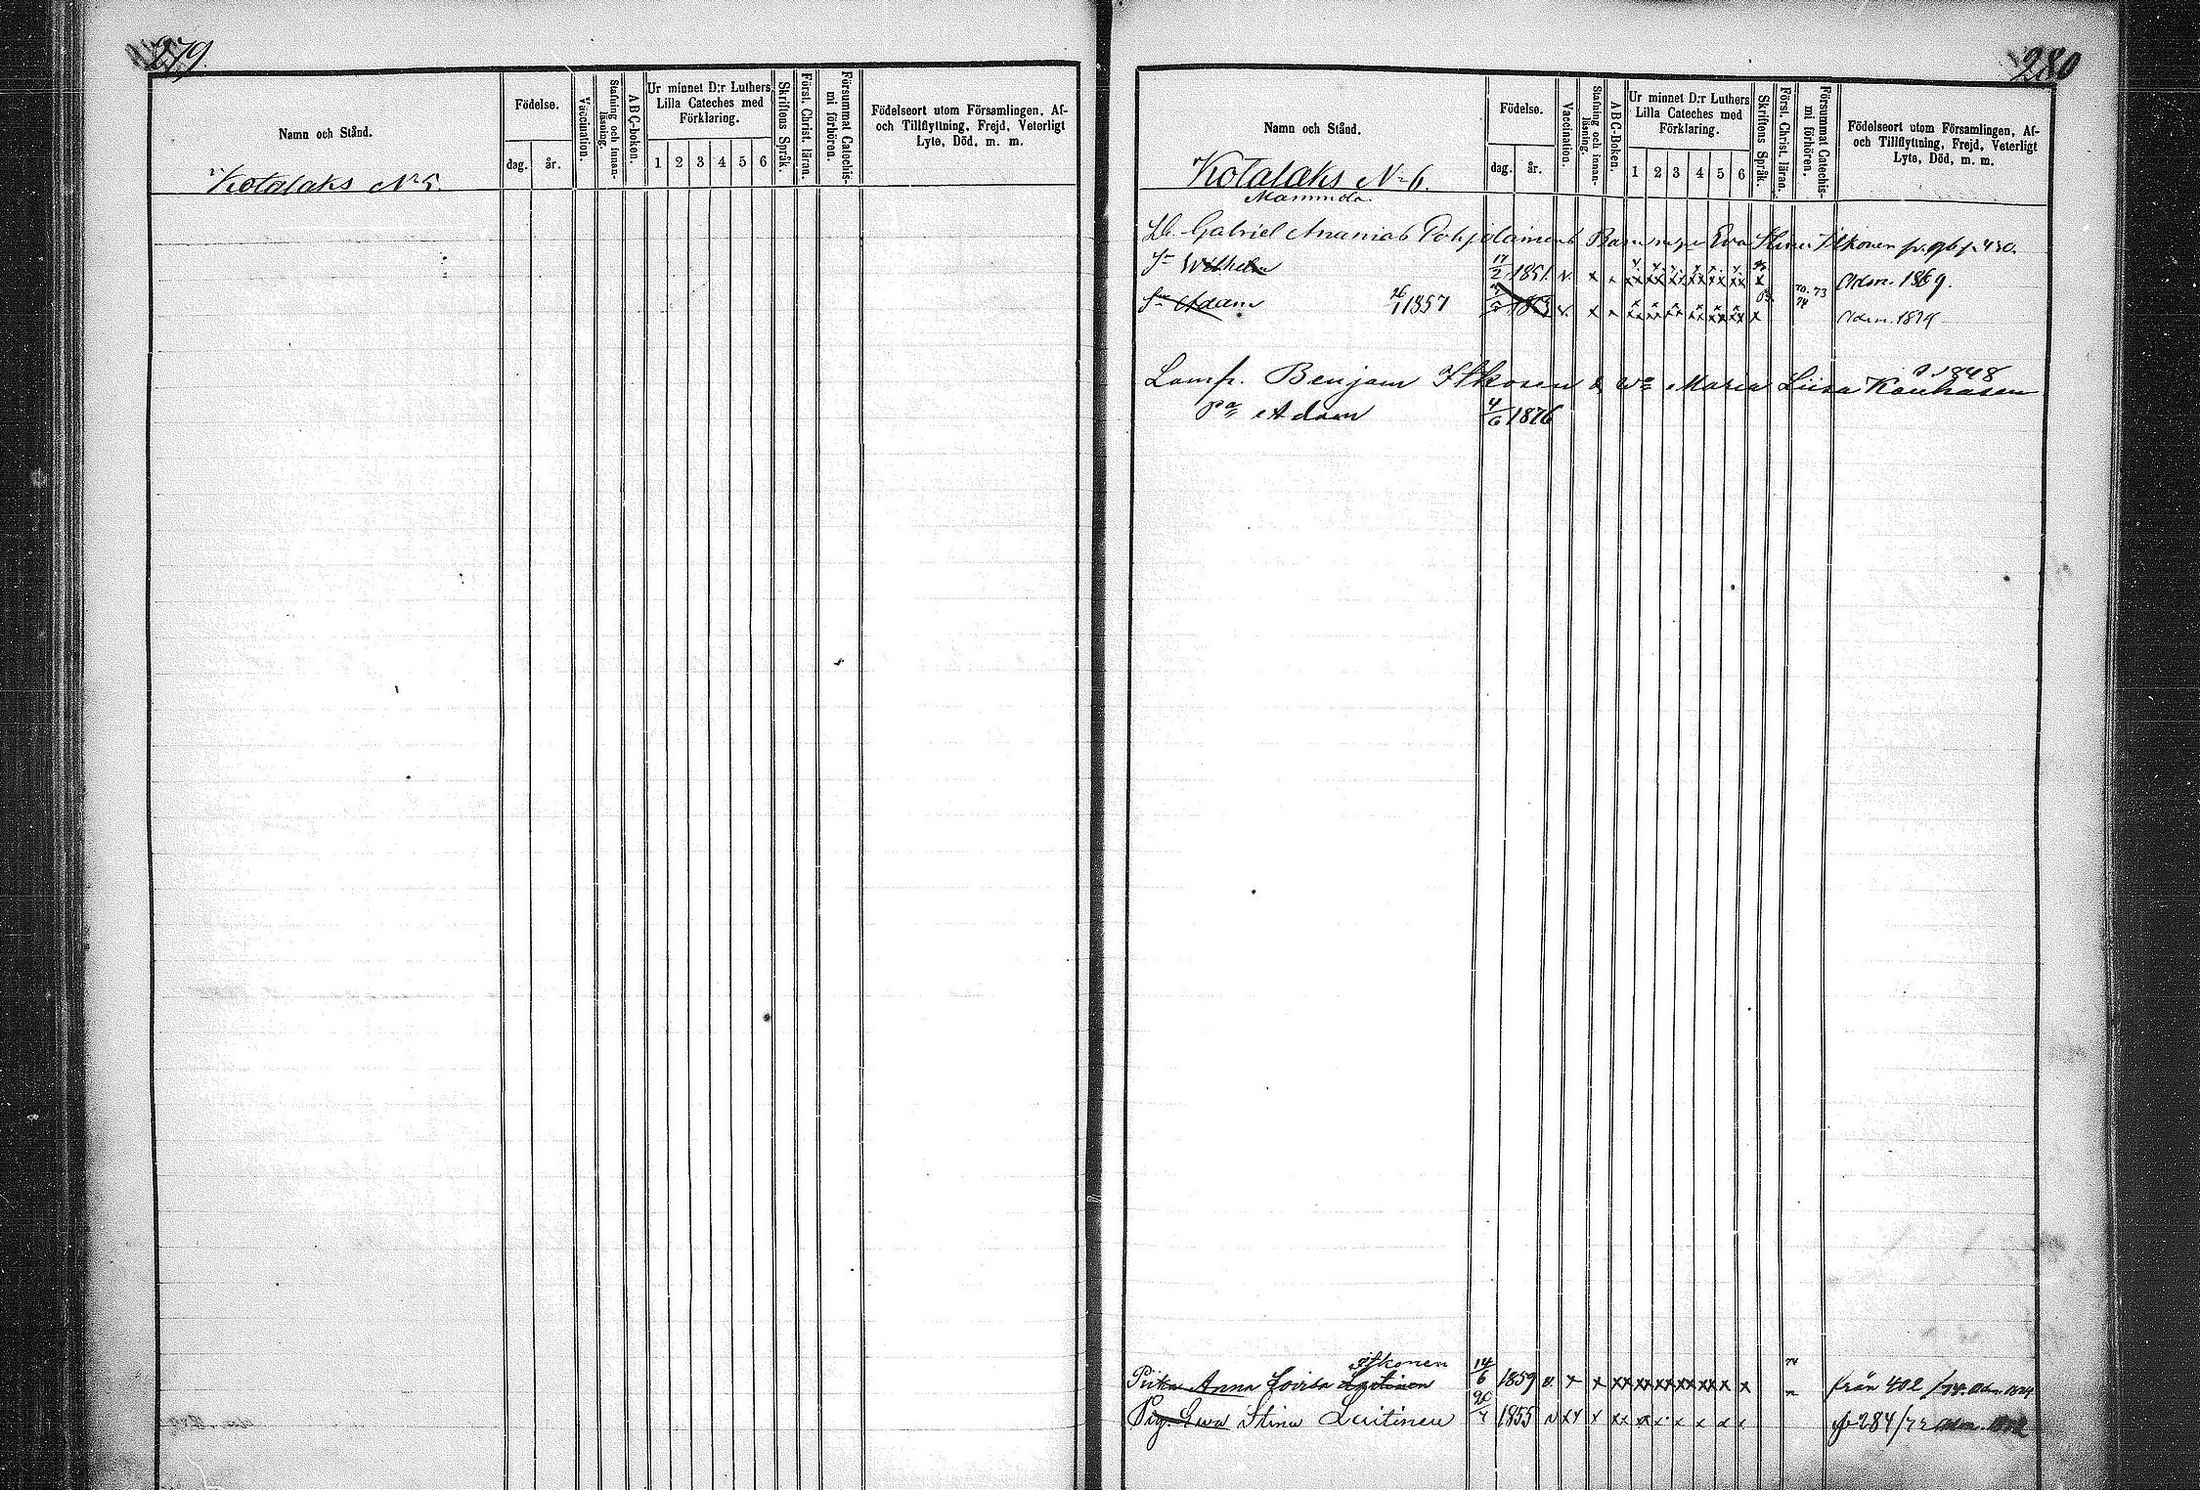 279.
Namn och Stånd.
Födelse.
dag. år.
Vaccination.
Stafning och innan-
läsning.
ABC-boken.
Ur minnet D:r Luthers
Lilla Cateches med
Förklaring.
1 2 3 4 5 6
Skriftens Språk.
Först. Christ. läran.
Försummat Catechis-
mi förhören.
Födelseort utom Församlingen, Af-
och Tillflyttning, Frejd, Veterligt
Lyte, Död, m. m.
Kotalaks No 5.
280
Namn och Stånd.
Födelse.
dag. år.
Vaccination.
Stafning och innan-
läsning.
ABC-boken.
Ur minnet D:r Luthers
Lilla Cateches med
Förklaring.
1 2 3 4 5 6
Skriftens Språk.
Först. Christ. läran.
Försummat Catechis-
mi förhören.
Födelseort utom Församlingen, Af-
och Tillflyttning, Frejd, Veterligt
Lyte, Död, m. m.
Kotalaks No 6.
Mammola.
Gabriel Ananias Pohjolainens Eva Stina Itkonen 430.
Sn Wilhelm 17/2 1851 v. x Adm. 1869.
Sn Adam 26/1 1857 v. x 70. 73 74 Adm. 1874
Lamp. Benjam Itkonen & Maria Liisa Kauhasen 1848
Adam 4/6 1876
Itkonen
Piika Anna Lovisa Laitinen 14/6 1859 v. x x xx xx xx xx x x 74 från 402 /74. Adm. 1874
Pig. Ewa Stina Laitinen 20/4 1855 v xx x xx x x x x x fr 284/72